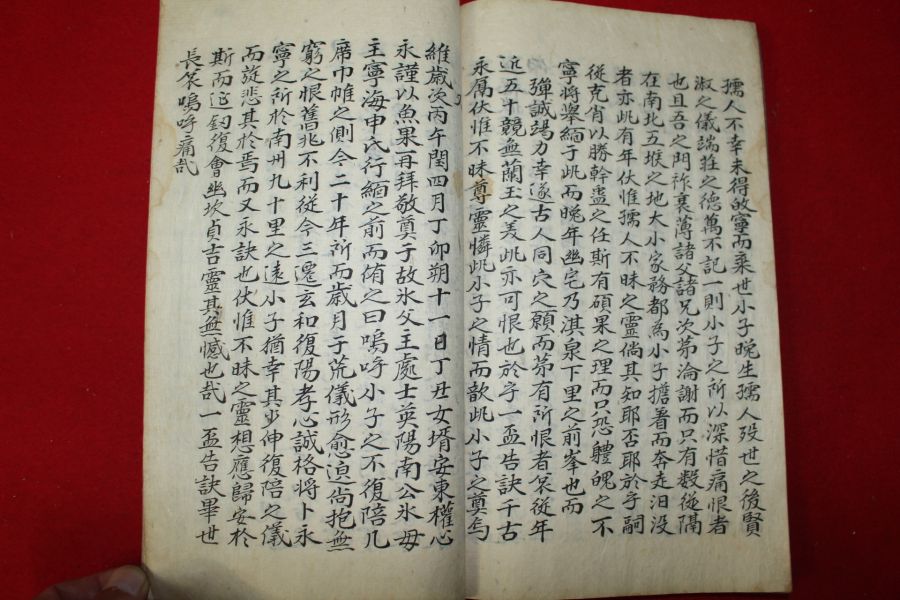 孺人不幸未得啟寧而棄世小子晚生孺人歿世之後賢
淑之儀端莊之德萬不記一則小子之所以深惜痛恨者
也且吾之門祚衰薄諸父諸兄次第淪謝而只有數從隔
在南北五堠之地大小家務都為小子擔著而奔走汨沒
者亦此有年伏惟孺人不昧之靈倘其知耶否耶於乎嗣
從克肖以勝幹蠱之任斯有碩果之理而只恐軆魄之不
寧將舉緬于此而晚年幽宅乃淇泉下里之前峯也而
殫誠竭力幸遂古人同穴之願而第有所恨者余從年
近五十競無蘭玉之美此亦可恨也於乎一盃告訣千古
永厲伏惟不昧尊靈憐此小子之情而歆此小子之奠焉
維歲次丙午閏四月丁卯朔十一日丁丑女壻安東權心
永謹以魚果再拜敬奠于故氷父主處士英陽南公氷母
主寧海申氏行緬之前而侑之曰嗚呼小子之不復陪几
席巾帷之側今二十年所而歲月于荒儀形愈迫尚抱無
窮之恨舊兆不利從今三遷玄和復陽孝心誠格將卜永
寧之所於南州九十里之遠小子猶幸其少伸復陪之儀
而旋悲其於焉而又永訣也伏惟不昧之靈想應歸安於
斯而延釰復會幽坎貞吉靈其無憾也哉一盃告訣畢世
長 嗚呼痛哉